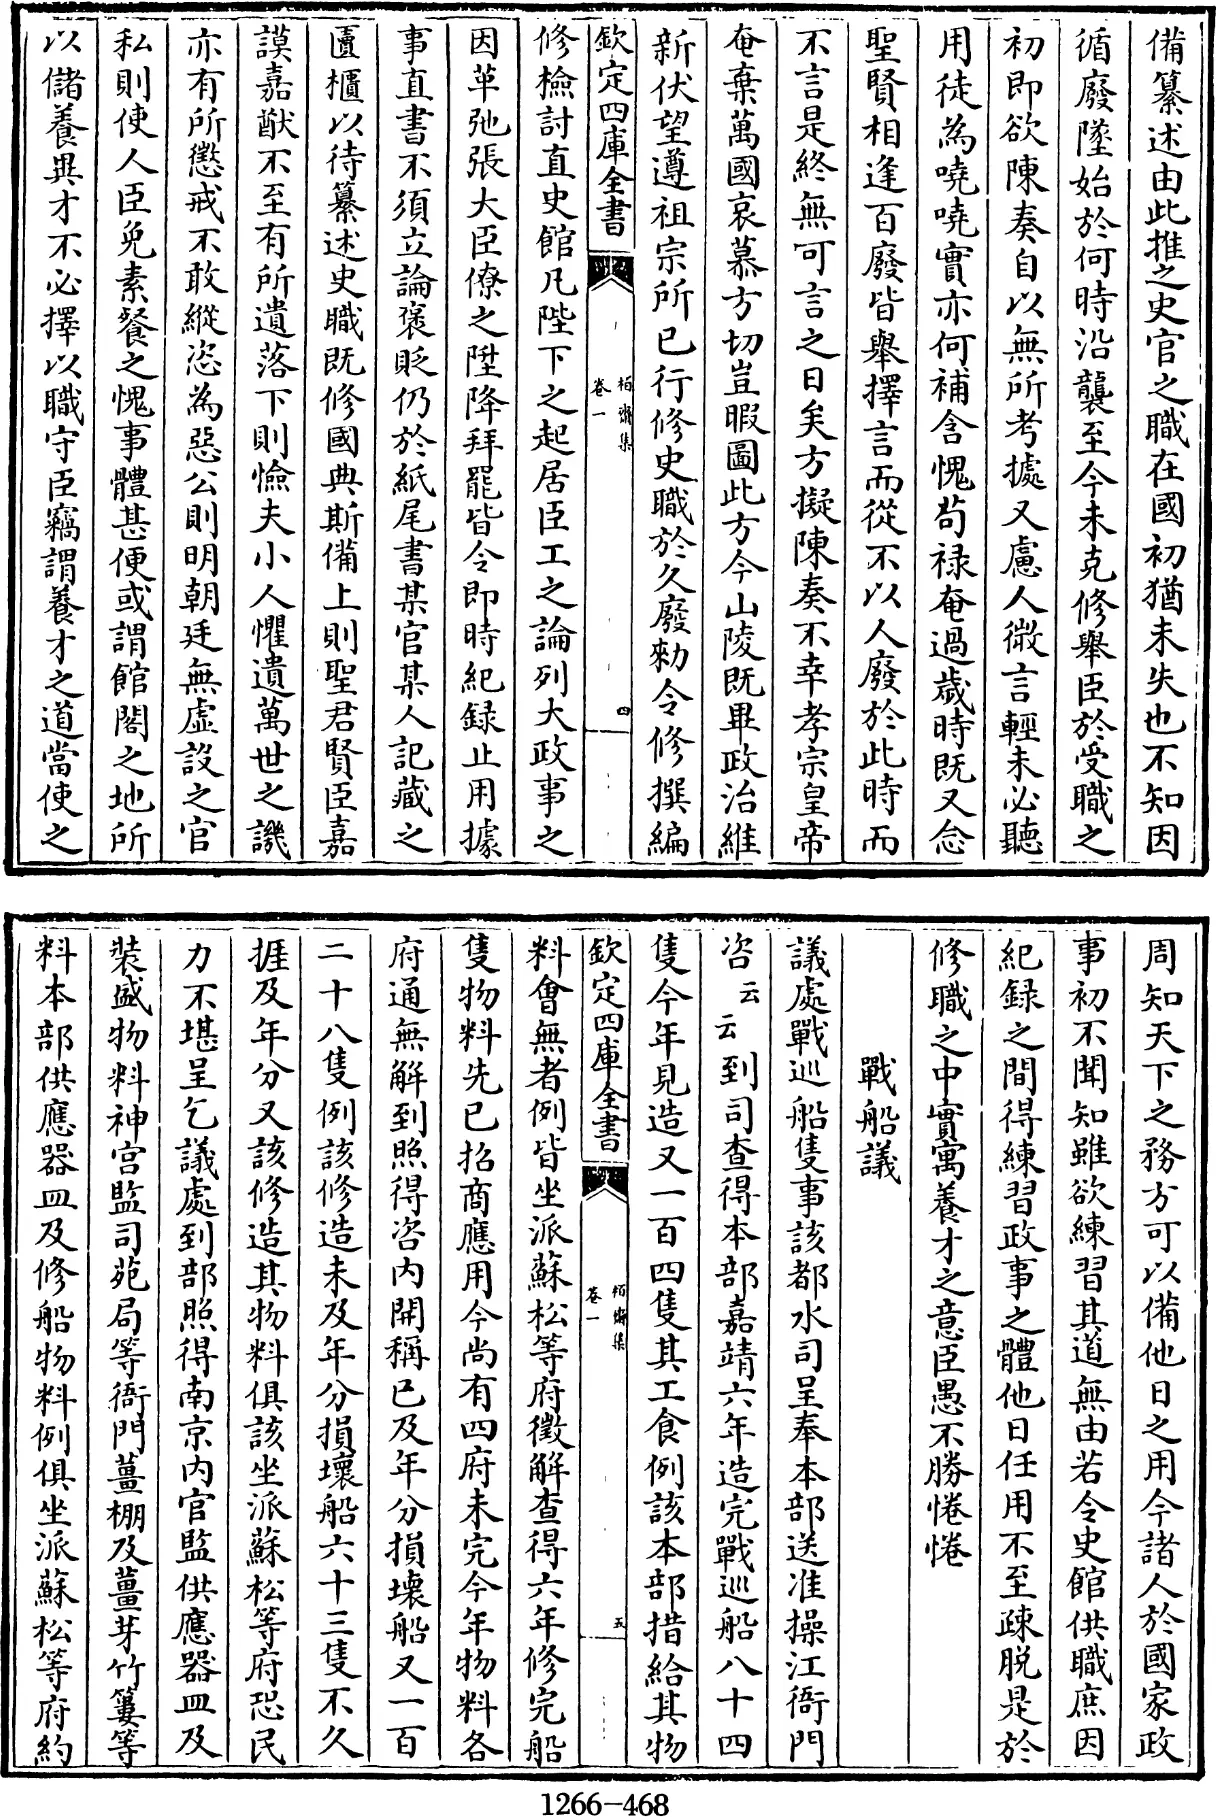 備纂述由此推之史官之職在國初猶未失也不知因
循廢墜始於何時沿襲至今未克修舉臣於受職之
初即欲陳奏自以無所考據又慮人微言輕未必聽
用徒為嘵嘵實亦何補含愧茍禄奄過歲時既又念
聖賢相逢百廢皆舉擇言而從不以人廢於此時而
不言是終無可言之日矣方擬陳奏不幸孝宗皇帝
奄棄萬國哀慕方切豈暇圖此方今山陵既畢政治維
新伏望遵祖宗所已行修史職於久廢勅令修撰編
欽定四庫全書
栢齋集
卷一
四
修檢討直史館凡陛下之起居臣工之論列大政事之
因革弛張大臣僚之陞降拜罷皆令即時紀録止用據
事直書不須立論褒貶仍於紙尾書某官某人記藏之
匱櫃以待纂述史職既修國典斯備上則聖君賢臣嘉
謨嘉猷不至有所遺落下則憸夫小人懼遺萬世之譏
亦有所懲戒不敢縱恣為惡公則明朝廷無虛設之官
私則使人臣免素餐之愧事體甚便或謂館閣之地所
以儲養異才不必擇以職守臣竊謂養才之道當使之
周知天下之務方可以備他日之用今諸人於國家政
事初不聞知雖欲練習其道無由若令史館供職庶因
紀録之間得練習政事之體他日任用不至疎脱是於
修職之中實寓養才之意臣愚不勝惓惓
戰船議
議處戰巡船隻事該都水司呈奉本部送准操江衙門
咨云云到司查得本部嘉靖六年造完戰巡船八十四
隻今年見造又一百四隻其工食例該本部措給其物
欽定四庫全書
栢齋集
卷一
五
料會無者例皆坐派蘇松等府徵解查得六年修完船
隻物料先已招商應用今尚有四府未完今年物料各
府通無解到照得咨内開稱已及年分損壞船又一百
二十八隻例該修造未及年分損壞船六十三隻不久
捱及年分又該修造其物料俱該坐派蘇松等府恐民
力不堪呈乞議處到部照得南京内官監供應器皿及
裝盛物料神宫監司苑局等衙門薑棚及薑芽竹簍等
料本部供應器皿及修船物料例俱坐派蘇松等府約
1266-468